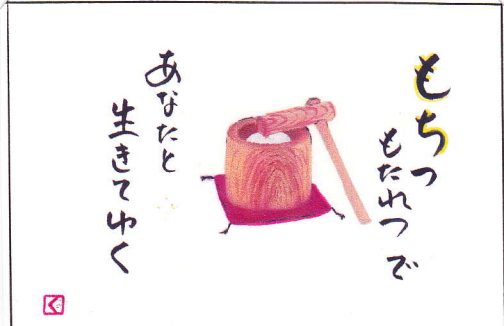 もちつ
もたれつで
あなたと
生きてゆく
く